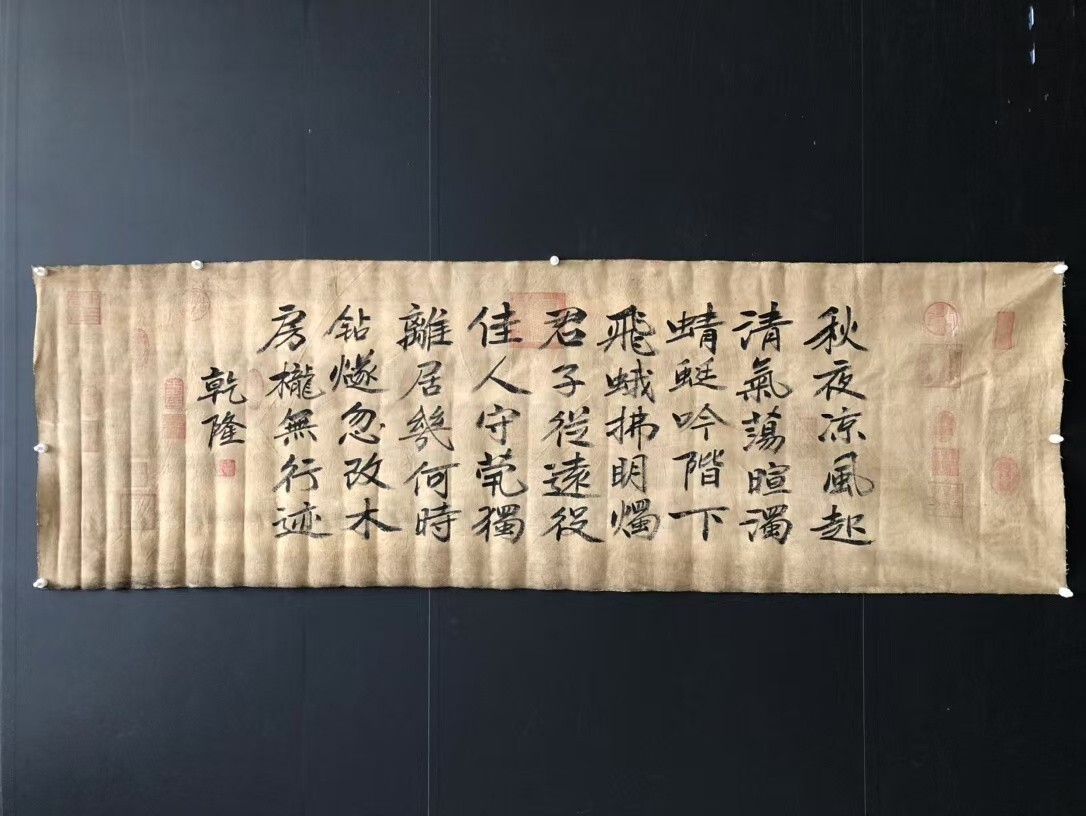 秋夜凉風起
清氣蕩暄濁
蜻蜓吟階下
飛蛾拂明燭
君子從遠役
佳人守茕獨
離居幾何時
钻燧忽改木
房櫳無行迹
乾隆